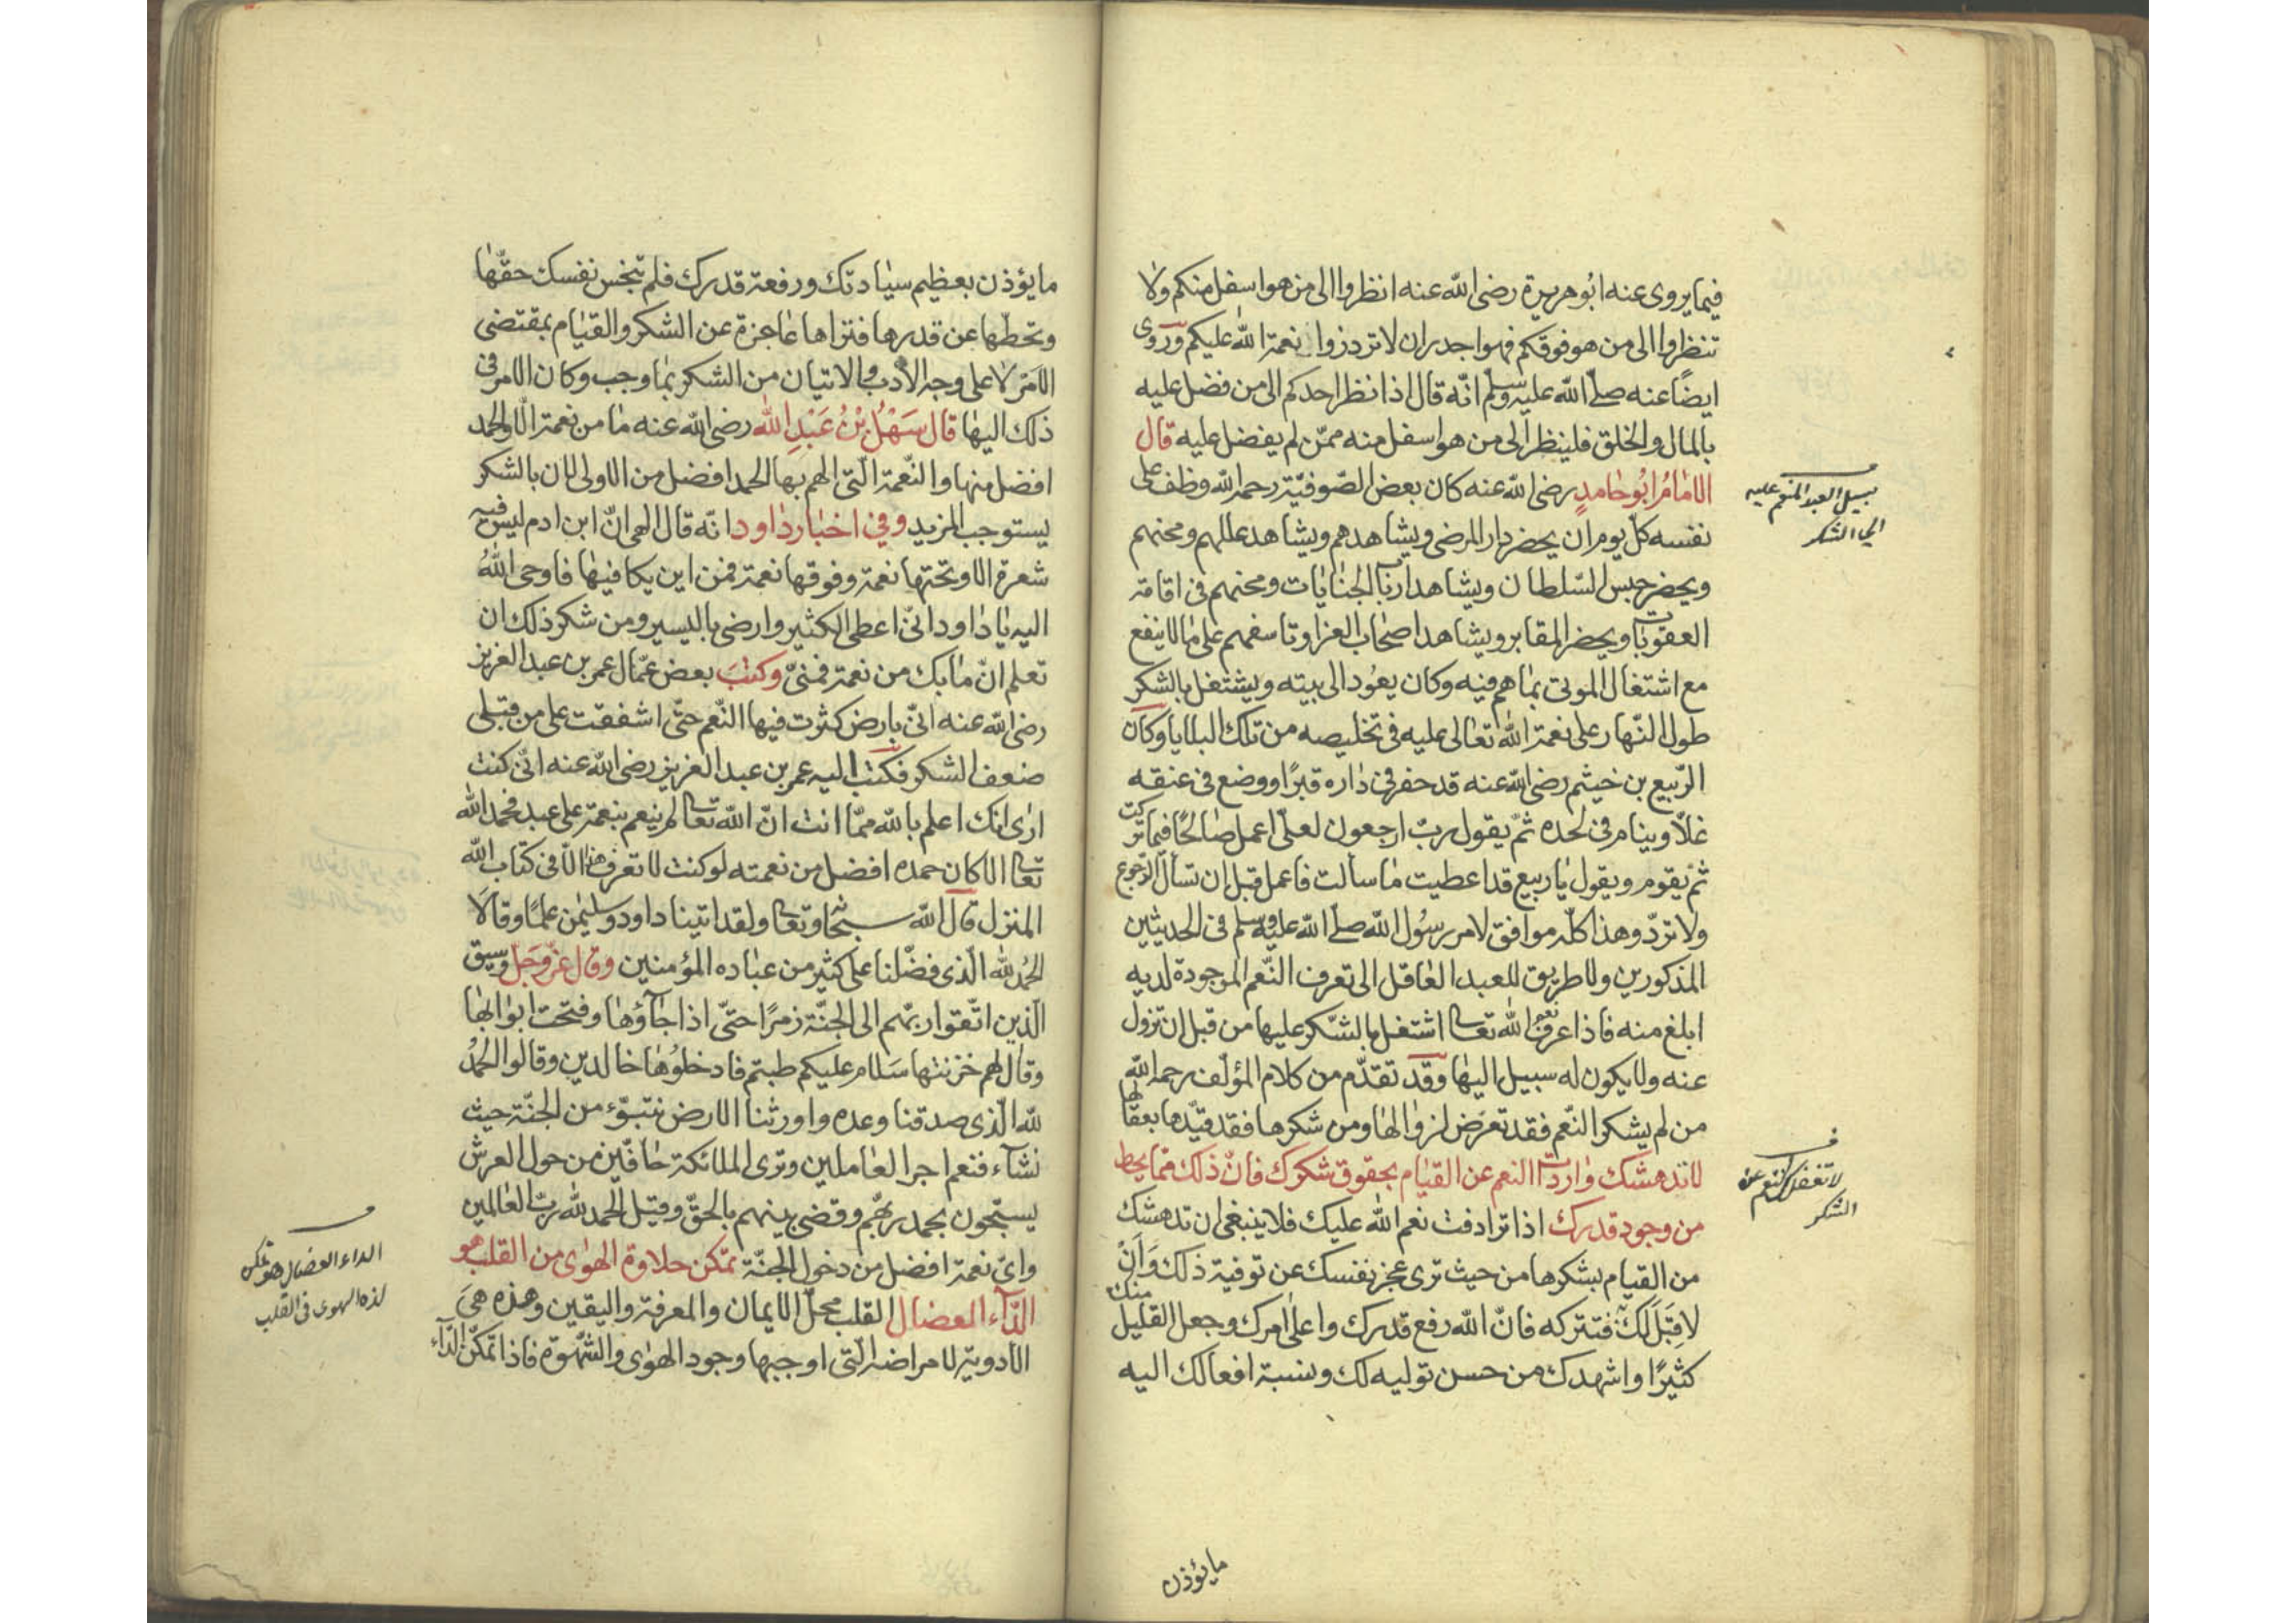 فيما يروى عنه ابو هريرة رضى الله عنه انظروا الى من هو اسفل منكم ولا
تنظروا الى من هو فوقكم فهو اجدر ان لا تزدروا نعمة الله عليكم وروى
ايضًا عنه صلى الله عليه وسلم انّه قال اذا نظر احدكم الى من فضل عليه
بالمال والخلق فلينظر الى من هو اسفل منه ممّن لم يفضل عليه قال
الامامُ ابُو حامدٍ رضى الله عنه كان بعض الصّوفيّة رحمه الله وظف على
نفسه كلّ يوم ان يحضر دار المرضى ويشاهدهم ويشاهد عللهم ومحنهم
ويحضر حبس السّلطان ويشاهد ارباب الجنايات ومحنهم فى اقامة
العقوبات ويحضر المقابر ويشاهد اصحاب العزا وتاسفهم على ما لا ينفع
مع اشتغال الموتى بما هم فيه وكان يعُود الى بيته ويشتغل بالشكر
طول النّهار على نعمة الله تعالى عليه فى تخليصه من تلك البلايا وكان
الرّبيع بن خيثم رضى الله عنه قد حفر فى داره قبرًا ووضع فى عنقه
غلاّ وينام فى لحده ثمّ يقول ربّ ارجعون لعلّى اعمل صالحًا فيما تركت
ثم يقوم ويقول يا ربيع قد اعطيت ما سألت فاعمل قبل ان تسأل الرّجوع
ولا تردّ وهذا كلّه موافق لامر رسُول الله صلى الله عليه وسلم فى الحديثين
المذكورين ولا طريق للعبد العاقل الى تعرف النّعم الموجودة لديه
ابلغ منه فاذا عرف نعم الله تعالى اشتغل بالشّكر عليها من قبل ان تزول
عنه ولا يكون له سبيل اليها وقد تقدّم من كلام المؤلّف رحمه الله
من لم يشكر النّعم فقد تعرّض لزوالها ومن شكرها فقد قيّدها بعقالها
لا تدهشك واردات النعم عن القيام بحقوق شكرك فانّ ذلك ممّا يحط
من وجود قدرك اذا ترادفت نعم الله عليك فلا ينبغى ان تدهشك
من القيام بشكرها من حيث ترى عجز نفسك عن توفية ذلك وَاَنْ
لا قِبَلَ لَكَ به فتتركه فانّ الله رفع قدرك واعلى امرك وجعل القليل منك
كثيرًا واشهدك من حسن توليه لك ونسبة افعالك اليه
سبيل العبد المنعم عليه
الى الشكر
لا تغفل كنتم عن
الشكر
مايؤذن
ما يؤذن بعظيم سيادتك ورفعة قدرك فلم تبخس نفسك حقّها
وتحطّها عن قدرها فتراها عاجزة عن الشكر والقيام بمقتضى
الاَمْر لا على وجه الأدب والاتيان من الشكر بما وجب وكان الامر فى
ذلك اليها قال سَهْلُ بْنُ عَبْدِ الله رضى الله عنه ما من نعمة الّا والحمد
افضل منها والنّعمة الّتى الهم بها الحمد افضل من الاولى لان بالشكر
يستوجب المزيد وفى اخبار داود انّه قال الهى انّ ابن ادم ليس فيه
شعرة الا وتحتها نعمة وفوقها نعمة فمن اين يكافيها فاوحى اللهُ
اليه يا داود انّى اعطى الكثير وارضى باليسير ومن شكر ذلك ان
تعلم انّ ما بك من نعمة فمنّى وكتبَ بعض عمّال عمر بن عبد العزيز
رضى الله عنه انّى بارض كثرت فيها النّعم حتّى اشفقت على من قبلى
ضعف الشكر فكتب اليه عمر بن عبد العزيز رضى الله عنه انّى كنت
ارى انك اعلم بالله ممّا انت انّ الله تعالى لم ينعم بنعمة على عبد فحمد الله
تعالى الا كان حمده افضل من نعمته لو كنت لا تعرف هذا الّا فى كتاب الله
المنزل قال الله سبحانه وتعالى ولقد اتينا داود وسليمن علمًا وقالَا
الحمُد لله الّذى فضّلنا على كثير من عباده المؤمنين وقال عزّ وجلّ وسيق
الّذين اتّقوا ربّهم الى الجنّة زمرًا حتّى اذا جاؤها وفتحت ابوابها
وقال لهم خزنتها سَلام عليكم طبتم فادخلُوها خالدين وقالوا الحمدُ
لله الّذى صدقنا وعده واورثنا الارض نتبوّء من الجنّة حيث
نشآء فنعم اجر العاملين وترى الملائكة حافّين من حول العرش
يسبّحون بحمد ربّهم وقضى بينهم بالحقّ وقيل الحمد لله ربّ العالمين
واىّ نعمة افضل من دخول الجنّة تمّكن حلاوة الهوى من القلب هو
الدّآء العضال القلب محلّ الايمان والمعرفة واليقين وهذه هىَ
الادوية لامراضه الّتى اوجبها وجود الهوى والشّهوة فاذا تمّكن الدّآء
الداء العضال هو تمكن
لذة الهوى فى القلب